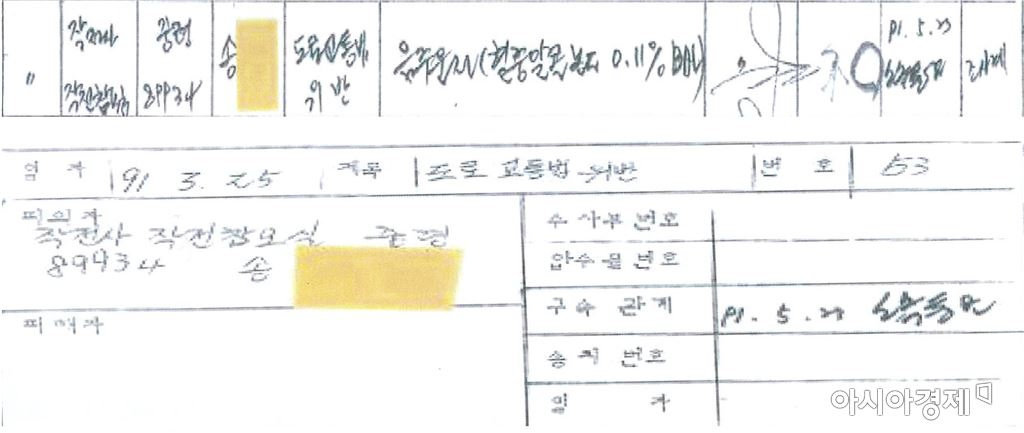 작전사 중령 송 도로교통법 91. 5. 23
" 작전참모실 89934 위반 음주운전(혈중알콜농도 0.11% )
일 자 91 3. 25 제목 도로 교통법 위반 번 호 53
피의자
작전사 작전참모실 중령
89934 송
피해자
수사부 번호
압수물 번호
구속 관계 91. 5. 23
송치 번호
일 자
아시아경제